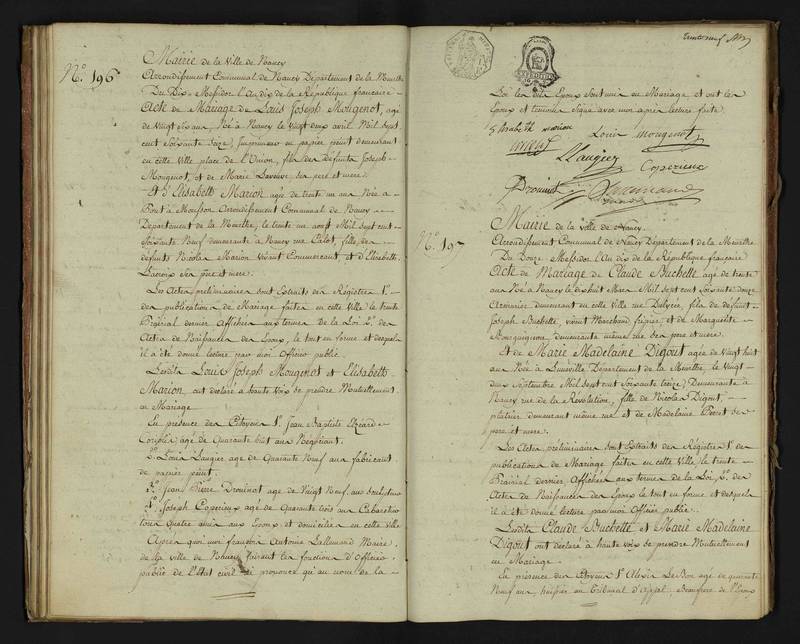 N.° 196
Mairie de la Ville de Nancy
Arrondissement Communal de Nancy Département de la Meurthe
Du Dix Messidor l'An dix de la République française
Acte de Mariage de Louis Joseph Mougenot, agé
de Vingt six ans, Né à Nancy le Vingt deux avril Mil sept
cent soixante seize, Imprimeur en papier peint demeurant
en cette Ville place de l'Union, fils des defunts Joseph
Mougenot, et de Marie ses pere et mere;
Et d'Elisabeth Marion agée de trente un ans Née a
Pont à Mousson Arrondissement Communal de Nancy
Département de la Meurthe, le trente un aout Mil sept cent
soixante Neuf demeurante à Nancy rue Callot, fille des
defunts Nicolas Marion vivant Commercant et d'Elisabeth
Lacroix ses pere et mere;
Les Actes préliminaires sont Extraits des Régistres 1°
des publications de Mariage faites en cette Ville le trente
Prairial dernier Affichées aux termes de la Loi 2° des
Actes de Naissances des Epoux, le tout en forme et desquels
il a été donné lecture par moi Officier public.
Lesdits Louis Joseph Mougenot et Elisabeth
Marion ont déclaré à haute voix se prendre Mutuellement
en Mariage
En presence des Citoyens 1° Jean Baptiste
agé de Quarante huit ans Négociant.
2° Louis Laugier agé de Quarante Neuf ans fabricant
de papier peint.
3° Jean Pierre Drouinot agé de Vingt Neuf ans Sculpteur
4° Joseph Coperieux agé de Quarante trois ans Cabaretier
tous quatre amis aux Epoux et domiciliés en cette Ville
Après quoi moi françois Antoine Lallemand Maire
de la Ville de Nancy faisant les fonctions d'Officier
public de l'Etat civil ai prononcé qu'au nom de la
trente neuf
Loi les dits Epoux sont unis en Mariage et ont les
Epoux et temoins Signé avec moi après lecture faite.
Elisabeth marion
Louis mougenot
L Laugier
Coperieux
Drouinot
Lallemand
N.° 197
Mairie de la ville de Nancy.
Arrondissement Communal de Nancy Département de la Meurthe
Du Douze Messidor l'An dix de la République française
Acte de Mariage de Claude Buchette agé de trente
ans Né à Nancy le dix huit Mars Mil sept cent soixante douze
Armurier demeurant en cette Ville rue fils de defunt
Joseph Buchette, vivant Marchand fripier, et de Marguerite
Bourguignon demeurante même rue ses pere et mere
Et de Marie Madelaine Digout agée de Vingt huit
ans Née à Luneville Département de la Meurthe, le Vingt
deux Septembre Mil sept cent soixante treize; Demeurante à
Nancy rue de la Révolution, fille de Nicolas Digout,
platrier demeurant même rue et de Madelaine ses
pere et mere.
Les Actes préliminaires sont Extraits des Régistres 1° des
publications de Mariage faites en cette Ville, le trente
Prairial dernier Affichées aux termes de la Loi 2° des
Actes de Naissances des Epoux le tout en forme et desquels
il a été donné lecture par moi Officier public.
Lesdits Claude Buchette et Marie Madelaine
Digout ont déclaré à haute voix se prendre Mutuellement
en Mariage
En presence des Citoyens 1° Alexis Le Bon agé de quarante
Neuf ans, huissier au Tribunal d'Appel, Beaufrere de l'Epoux